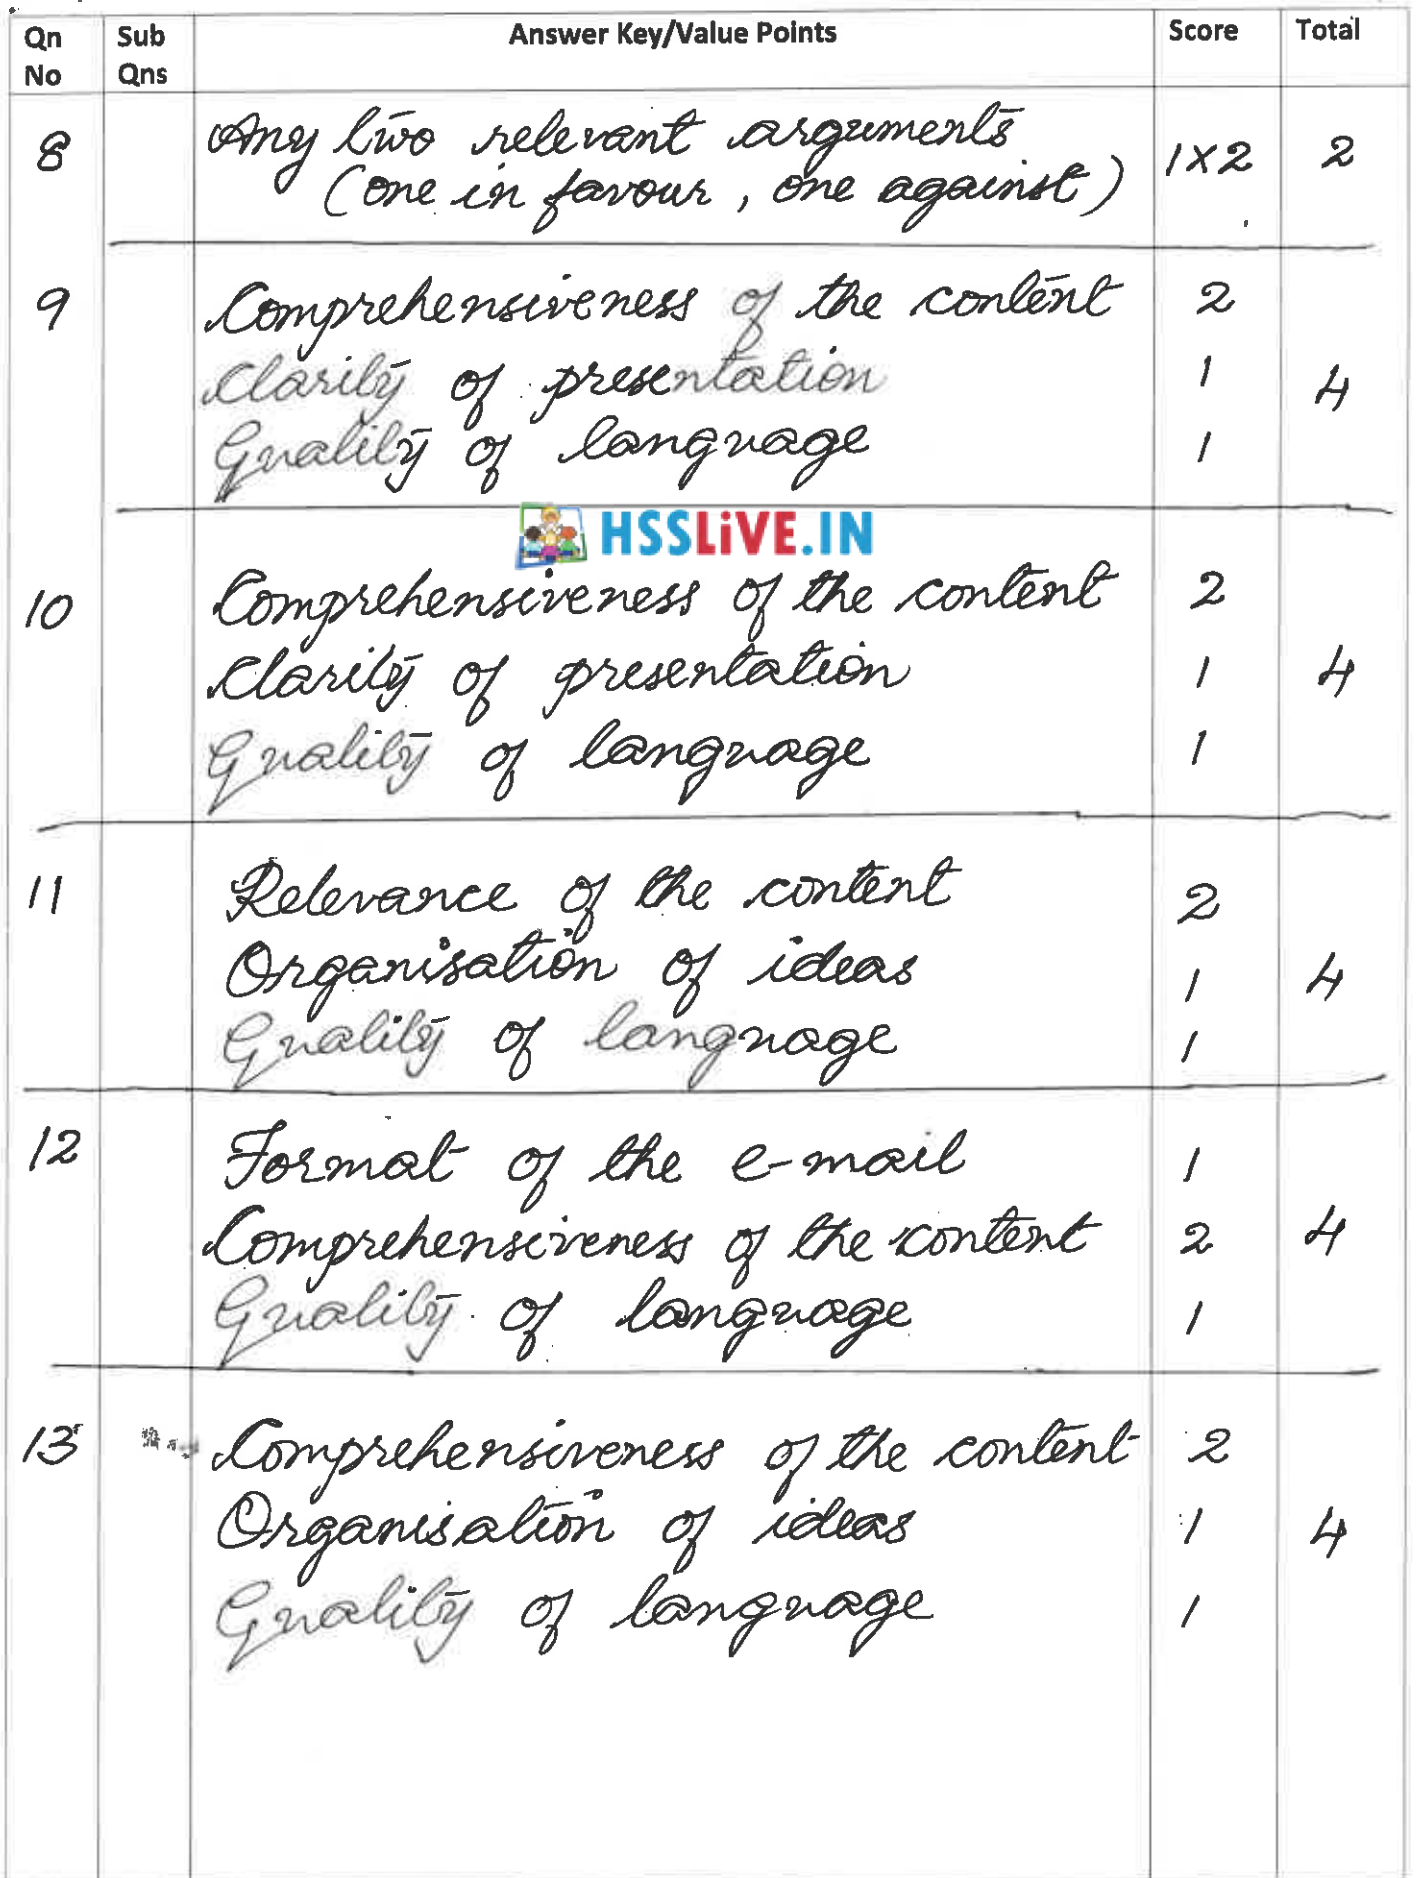 Qn No Sub Qns Answer Key/Value Points Score Total
8 Any two relevant arguments 1x2 2
(one in favour, one against)
9 Comprehensiveness of the content 2
Clarity of presentation 1 4
Quality of language 1
HSSLiVE.IN
10 Comprehensiveness of the content 2
Clarity of presentation 1 4
Quality of language 1
11 Relevance of the content 2
Organisation of ideas 1 4
Quality of language 1
12 Format of the e-mail 1
Comprehensiveness of the content 2 4
Quality of language 1
13 Comprehensiveness of the content 2
Organisation of ideas 1 4
Quality of language 1